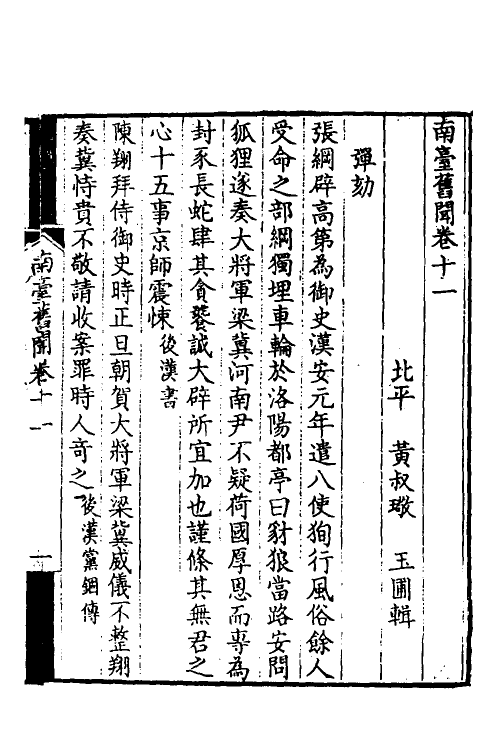 南臺舊聞卷十一
北平 黃叔璥 玉圃輯
彈劾
張綱辟高第為御史漢安元年遣八使狥行風俗餘人
受命之部綱獨埋車輪於洛陽都亭曰豺狼當路安問
狐狸遂奏大將軍梁冀河南尹不疑荷國厚恩而專為
封豕長蛇肆其貪饕誠大辟所宜加也謹條其無君之
心十五事京師震悚後漢書
陳翔拜侍御史時正旦朝賀大將軍梁冀威儀不整翔
奏冀恃貴不敬請收案罪時人奇之後漢黨錮傳
南臺舊聞卷十一 一